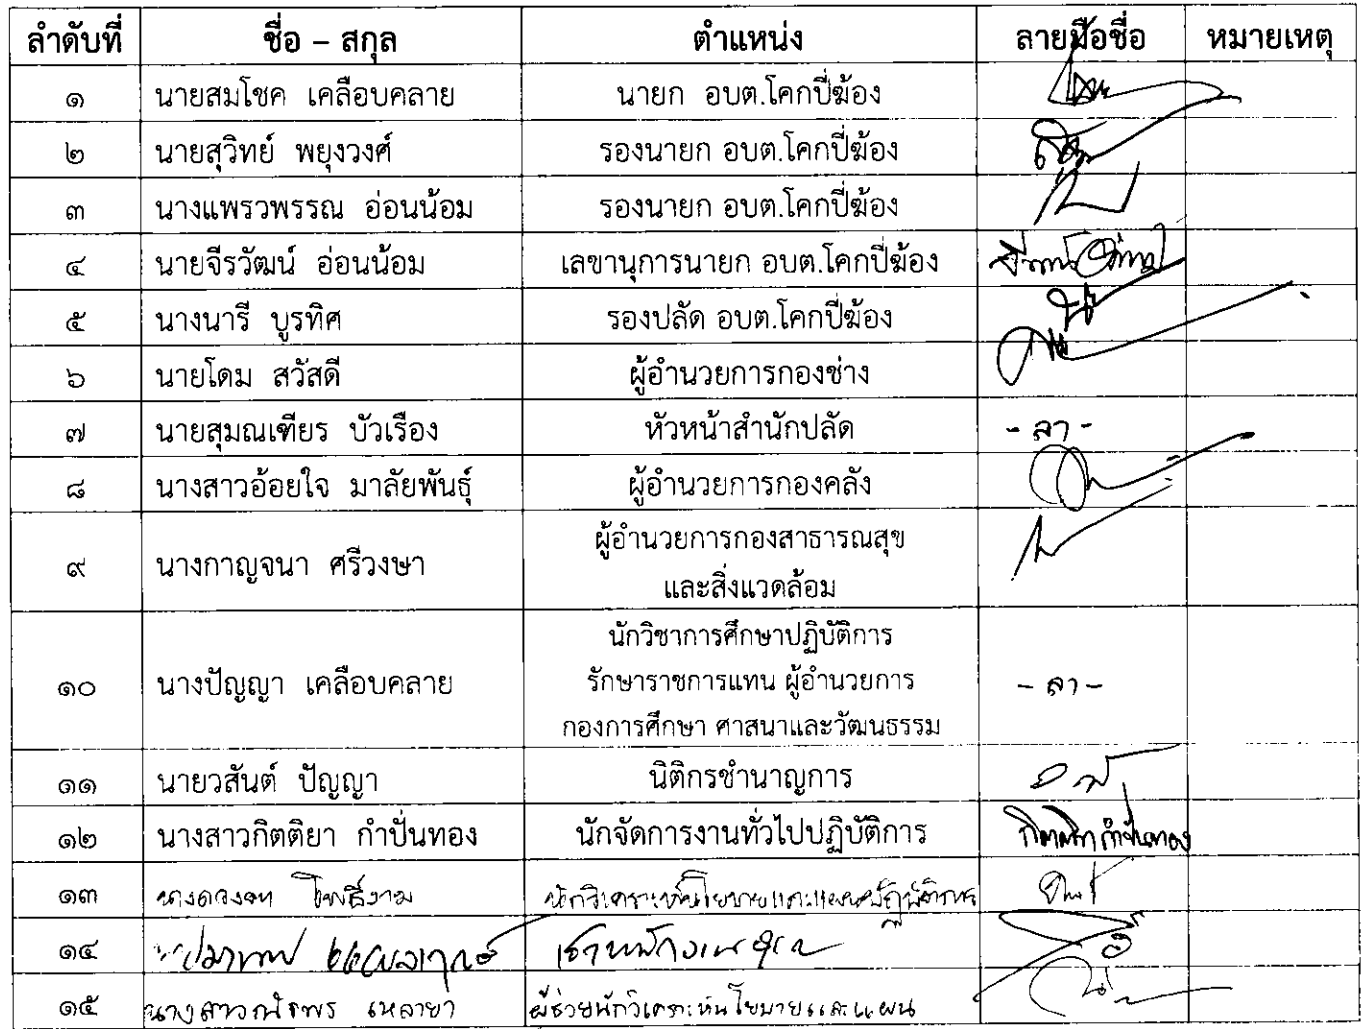 ลำดับที่ ชื่อ – สกุล ตำแหน่ง ลายมือชื่อ หมายเหตุ
๑ นายสมโชค เคลือบคลาย นายก อบต.โคกปี่ฆ้อง
๒ นายสุวิทย์ พยุงวงศ์ รองนายก อบต.โคกปี่ฆ้อง
๓ นางแพรวพรรณ อ่อนน้อม รองนายก อบต.โคกปี่ฆ้อง
๔ นายจีรวัฒน์ อ่อนน้อม เลขานุการนายก อบต.โคกปี่ฆ้อง
๕ นางนารี บูรทิศ รองปลัด อบต.โคกปี่ฆ้อง
๖ นายโดม สวัสดี ผู้อำนวยการกองช่าง
๗ นายสุมณเฑียร บัวเรือง หัวหน้าสำนักปลัด - ลา -
๘ นางสาวอ้อยใจ มาลัยพันธุ์ ผู้อำนวยการกองคลัง
๙ นางกาญจนา ศรีวงษา ผู้อำนวยการกองสาธารณสุข
และสิ่งแวดล้อม
นักวิชาการศึกษาปฏิบัติการ
๑๐ นางปัญญา เคลือบคลาย รักษาราชการแทน ผู้อำนวยการ - ลา -
กองการศึกษา ศาสนาและวัฒนธรรม
๑๑ นายวสันต์ ปัญญา นิติกรชำนาญการ
๑๒ นางสาวกิตติยา กำปั่นทอง นักจัดการงานทั่วไปปฏิบัติการ กิตติยา กำปั่นทอง
๑๓ โพธิ์งาม นักวิเคราะห์นโยบายและแผนปฏิบัติการ
๑๔
๑๕ นางสาว เหลายา ผู้ช่วยนักวิเคราะห์นโยบายและแผน